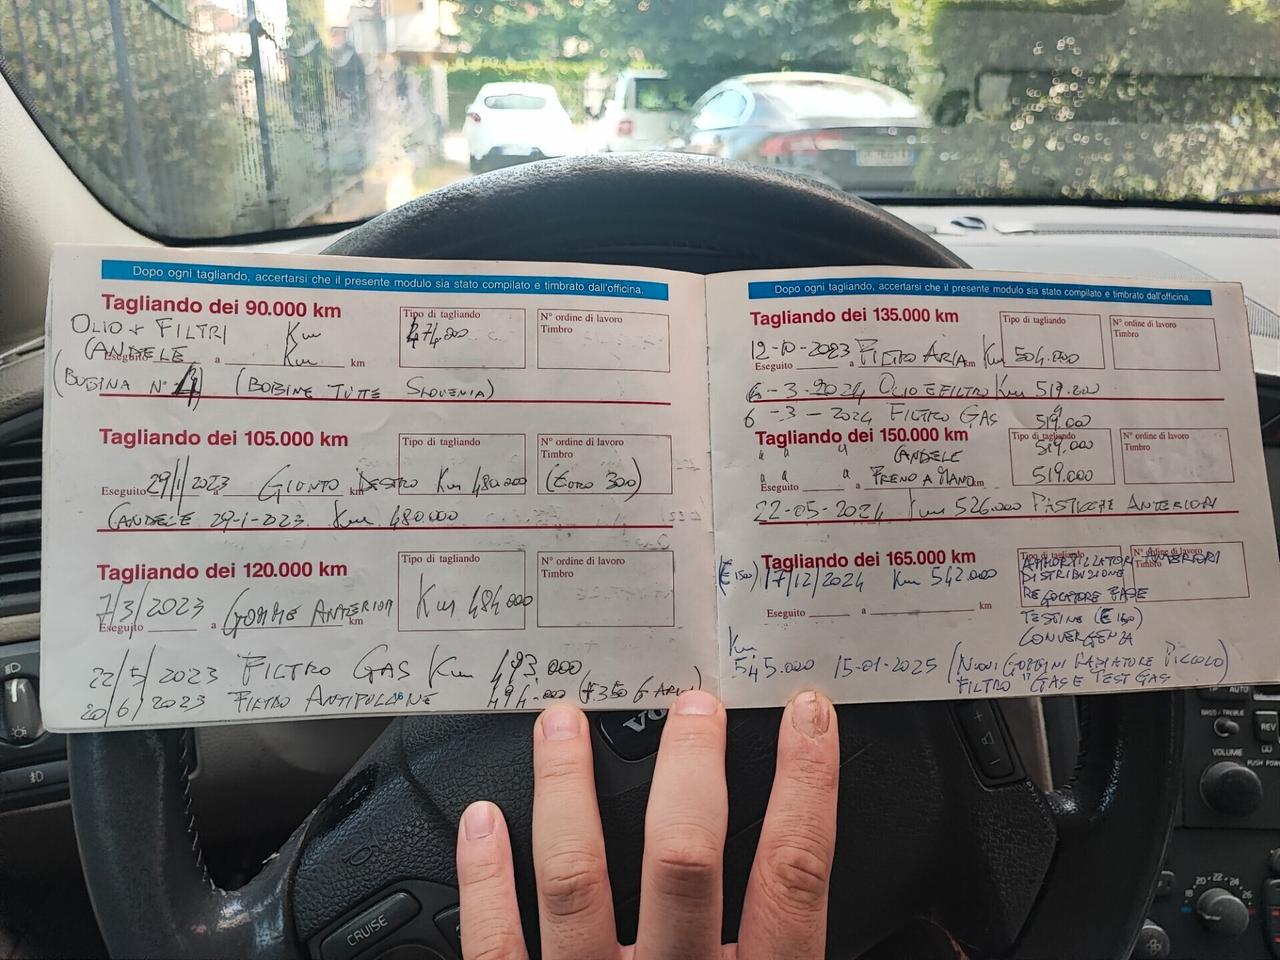 Dopo ogni tagliando, accertarsi che il presente modulo sia stato compilato e timbrato dall'officina.
Tagliando dei 90.000 km
OLIO + FILTRI Km
Tipo di tagliando
474.000
N° ordine di lavoro
Timbro
CANDELE Km
Eseguito a km
(BOBINA N° 4) (BOBINE TUTTE SLOVENIA)
Tagliando dei 105.000 km
Tipo di tagliando
N° ordine di lavoro
Timbro
Eseguito 29/1/2023 GIUNTO DESTRO Km 480.000 (EURO 300)
km
CANDELE 29-1-2023 Km 480.000
Tagliando dei 120.000 km
Tipo di tagliando
N° ordine di lavoro
Timbro
7/3/2023 GOMME ANTERIORI Km 484.000
Eseguito a km
22/5/2023 FILTRO GAS Km 493.000
20/6/2023 FILTRO ANTIPOLLINE 494.000
Dopo ogni tagliando, accertarsi che il presente modulo sia stato compilato e timbrato dall'officina.
Tagliando dei 135.000 km
Tipo di tagliando
N° ordine di lavoro
Timbro
12-10-2023 FILTRO ARIA Km 504.000
Eseguito a km
6-3-2024 OLIO E FILTRO Km 519.200
6-3-2024 FILTRO GAS 519.000
Tagliando dei 150.000 km
Tipo di tagliando
N° ordine di lavoro
Timbro
" " " CANDELE 519.000
" " " FRENO A MANO 519.000
Eseguito km
22-05-2024 Km 526.000 PASTICCHE ANTERIORI
Tagliando dei 165.000 km
Tipo di tagliando
N° ordine di lavoro
Timbro
(€ 1500) 17/12/2024 Km 542.000
AMMORTIZZATORI ANTERIORI
DISTRIBUZIONE
REGOLATORE FASE
TESTINE (€ 150)
CONVERGENZA
Eseguito a km
Km
545.000 15-01-2025 (NUOVI GOMMINI RADIATORE PICCOLO)
FILTRO GAS E TEST GAS
CRUISE
AUTO
BASS/TREBLE
REV
VOLUME
PUSH
18 20 22 24 26